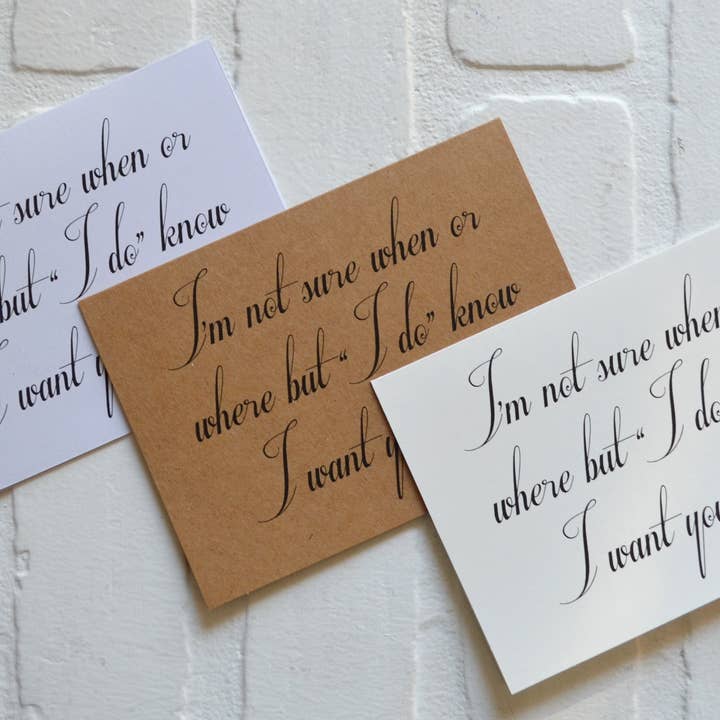 sure when or
but "I do" know
I want
I'm not sure when or
where but "I do" know
I want
I'm not sure when
where but "I do
I want you